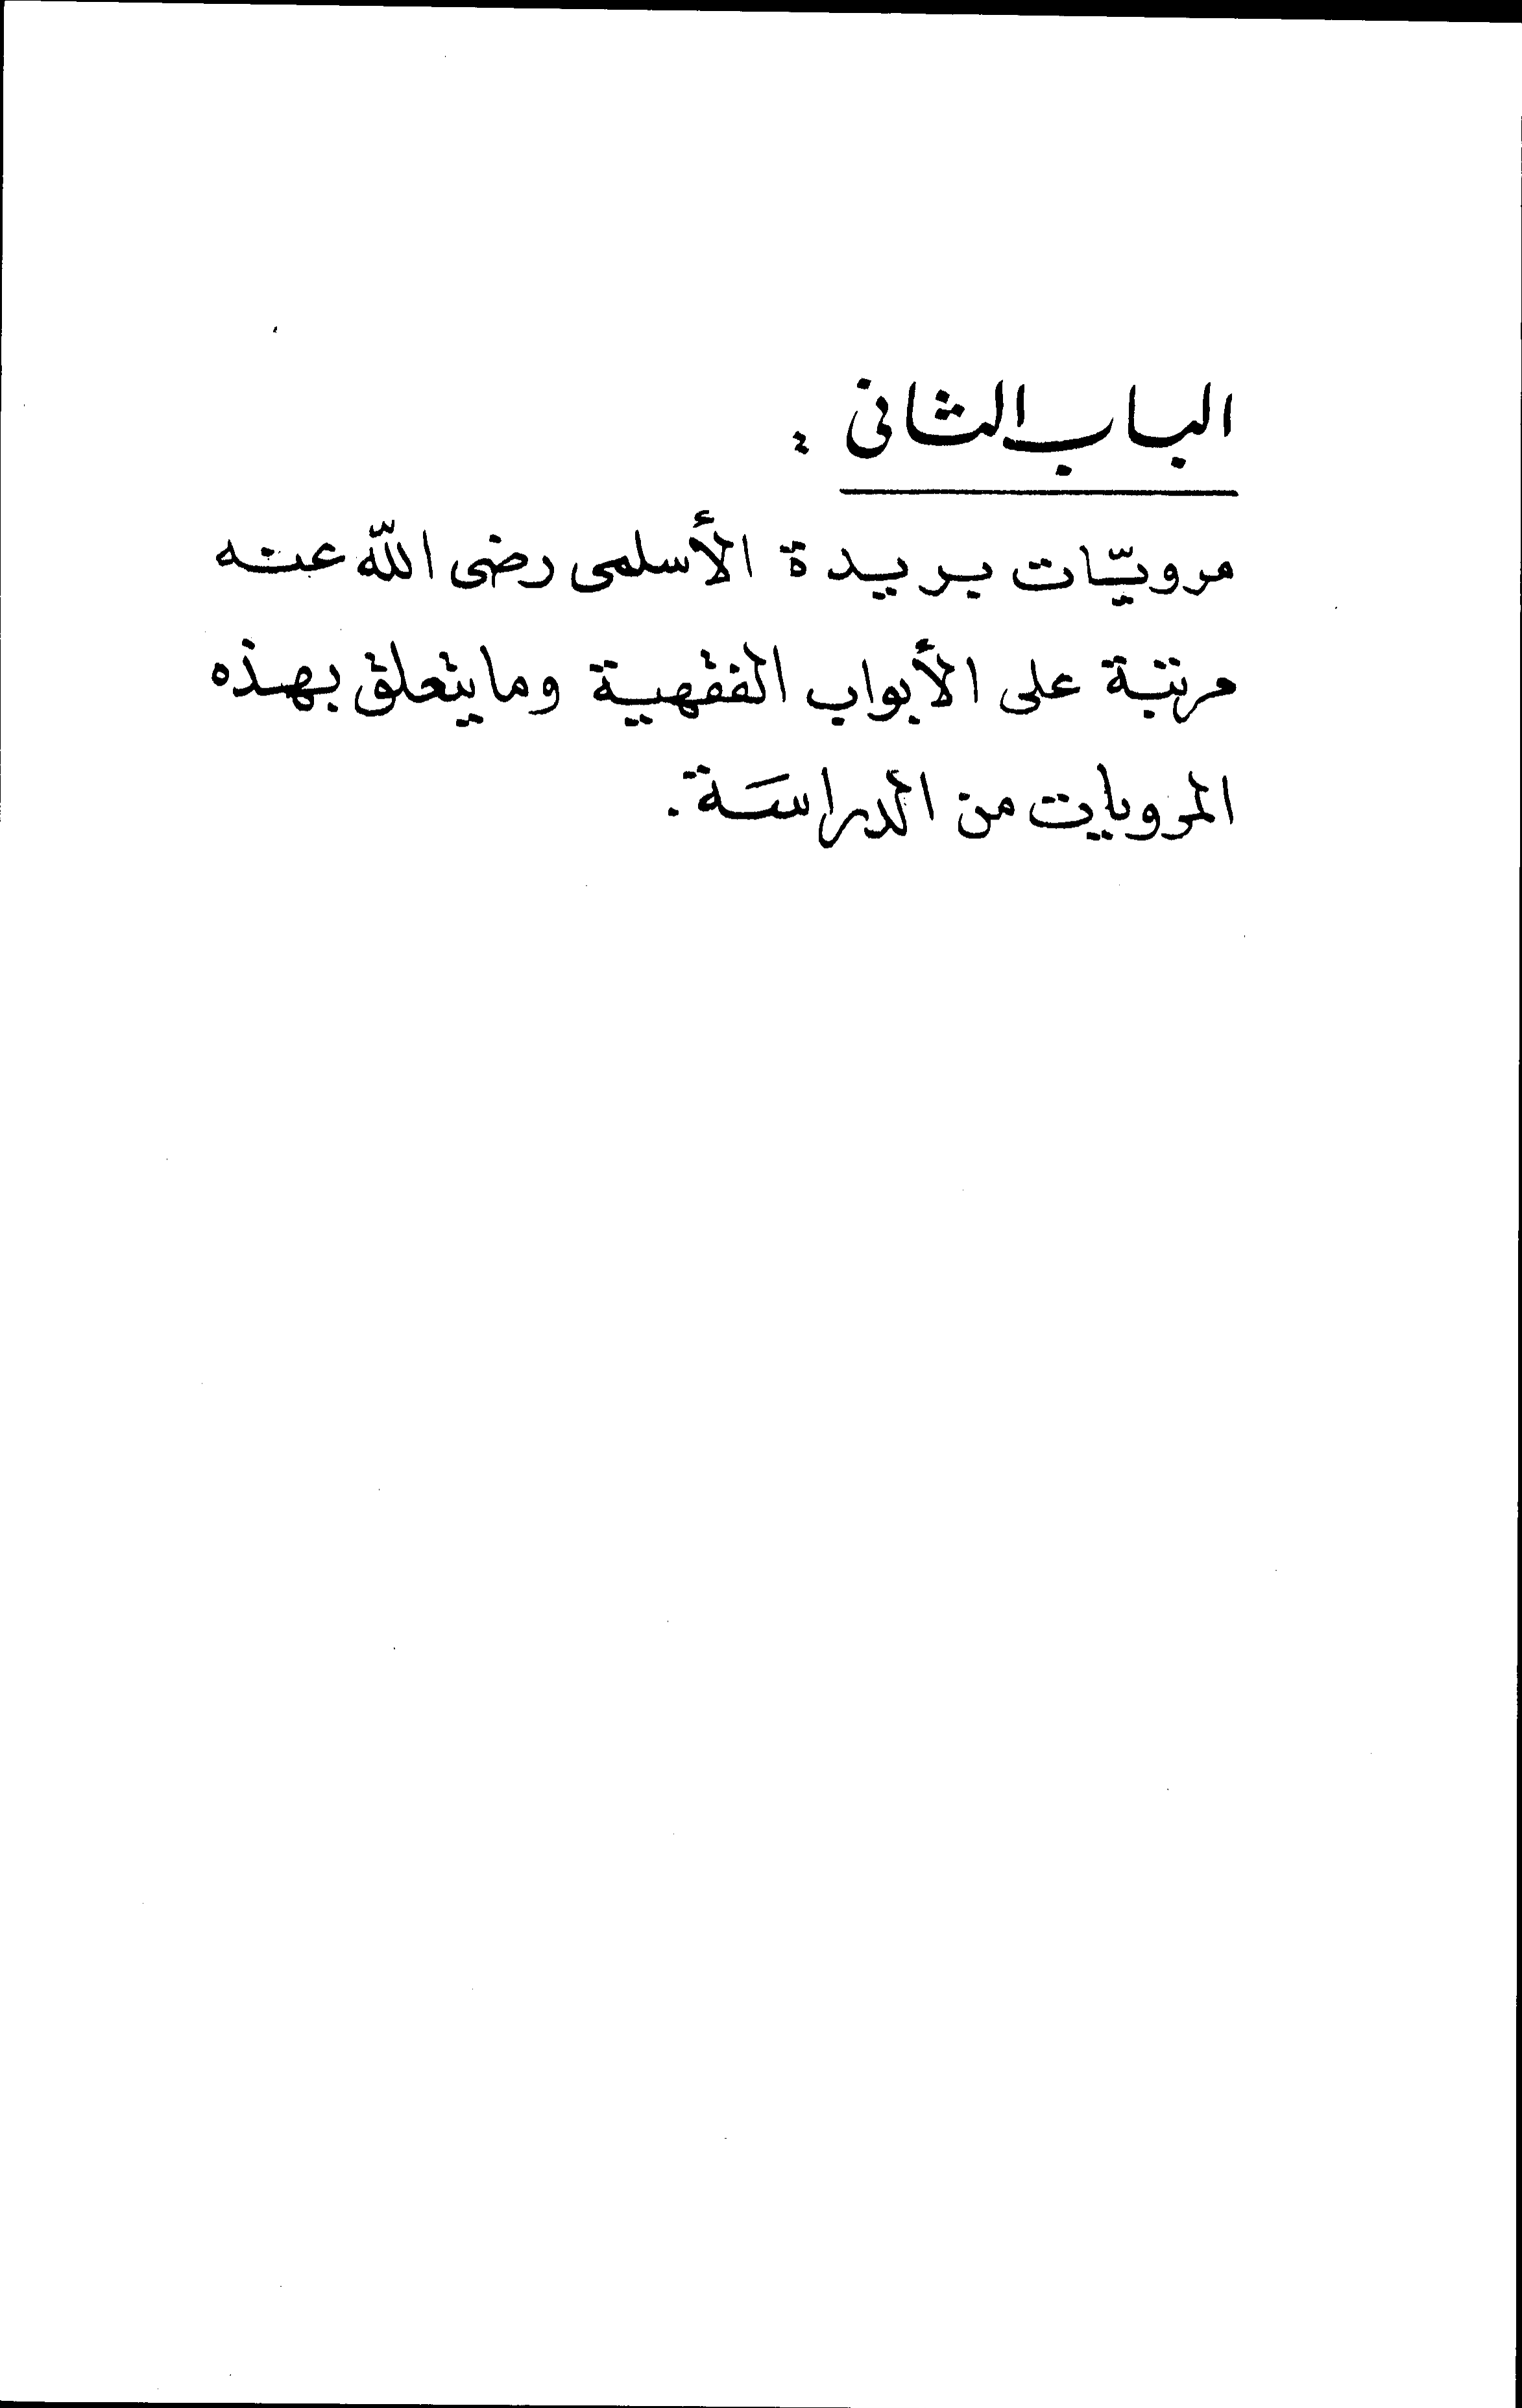 الباب الثانى :
مرويّات بريدة الأسلمى رضى اللّه عنه
مرتبة على الأبواب الفقهية وما يتعلق بهذه
المرويات من الدراسَة .